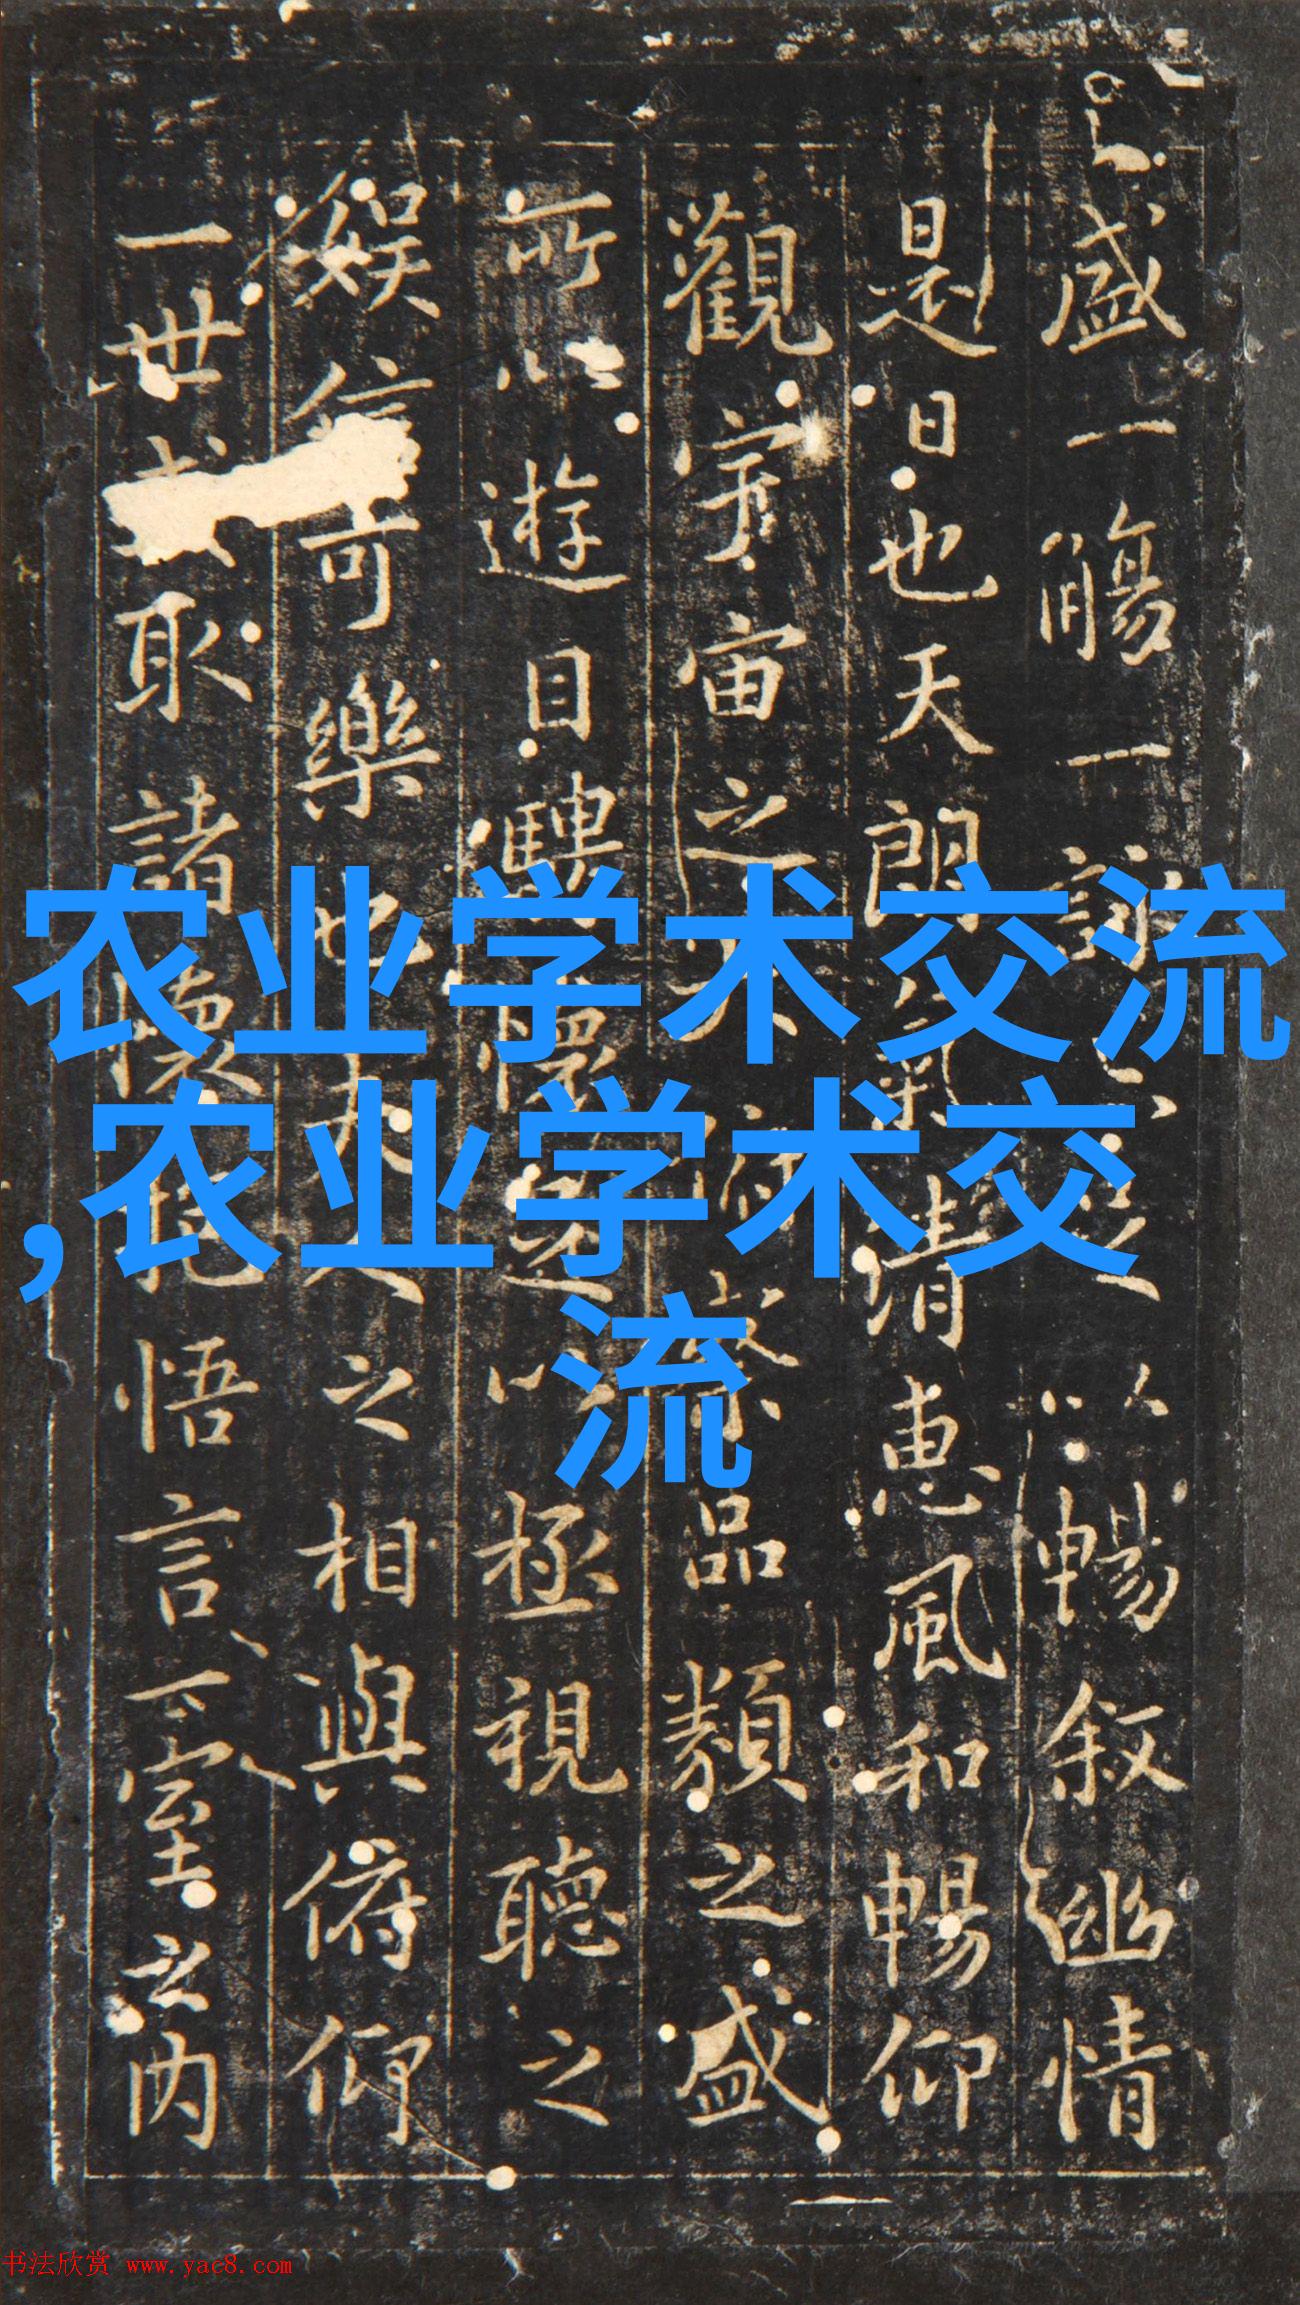 盛一觴一詠亦足以暢叙幽情
是日也天朗氣清惠風和暢仰
觀宇宙之大俯察品類之盛
所以遊目騁懷足以極視聽之
娛信可樂也夫人之相與俯仰
一世或取諸懷抱悟言一室之内
农业学术交流
,农业学术交
流
书法欣赏 www.yac8.com